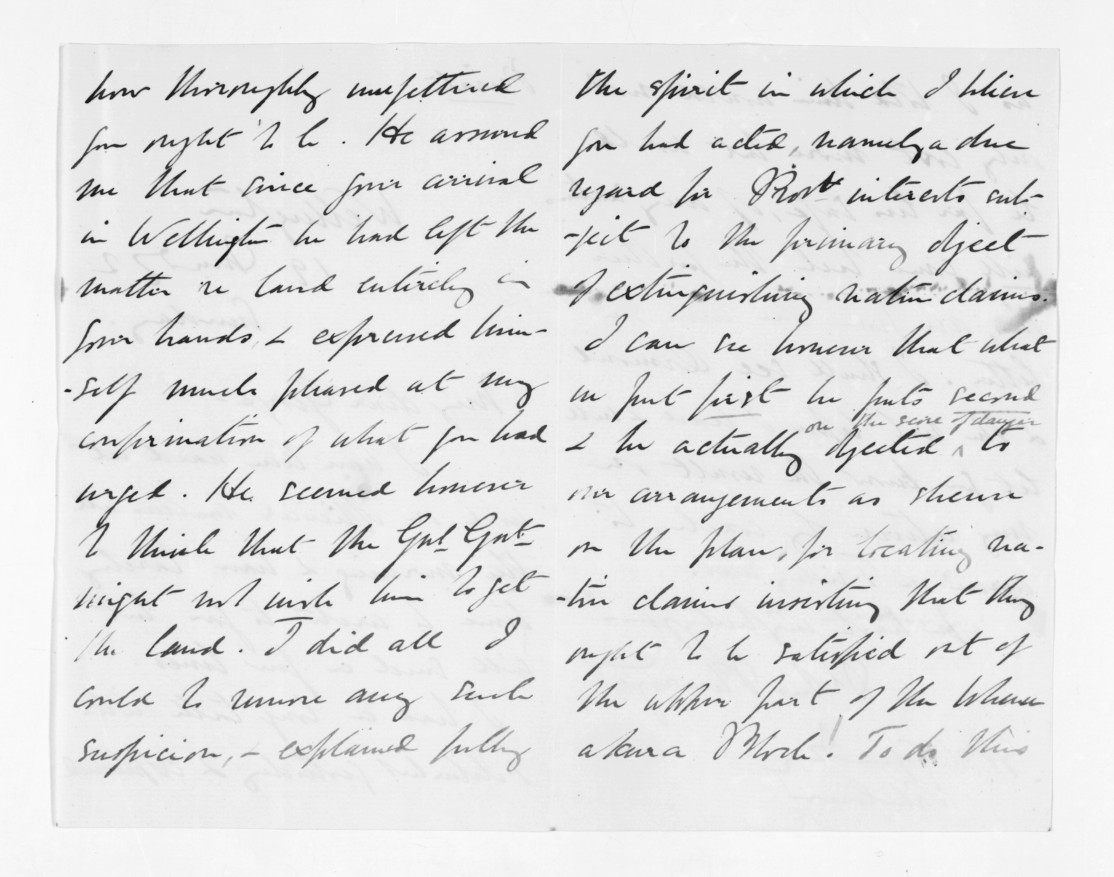 how thoroughly unfettered
you ought to be. He assured
me that since your arrival
in Wellington he had left the
matter re land entirely in
your hands, & expressed him-
-self much pleased at my
confirmation of what you had
urged. He seemed however
to think that the Genl. Govt.
might not wish him to get
the land. I did all I
could to remove any such
suspicion, & explained fully
the spirit in which I believe
you had acted, namely a due
regard for Provl. interests sub-
-ject to the primary object
of extinguishing native claims.
I can see however that what
we put first he puts second
on the score of danger
& he actually objected ^ to
our arrangements as shewn
on the plan, for locating na-
-tive claims insisting that they
ought to be satisfied out of
the upper part of the Whenu
akura Block! To do this